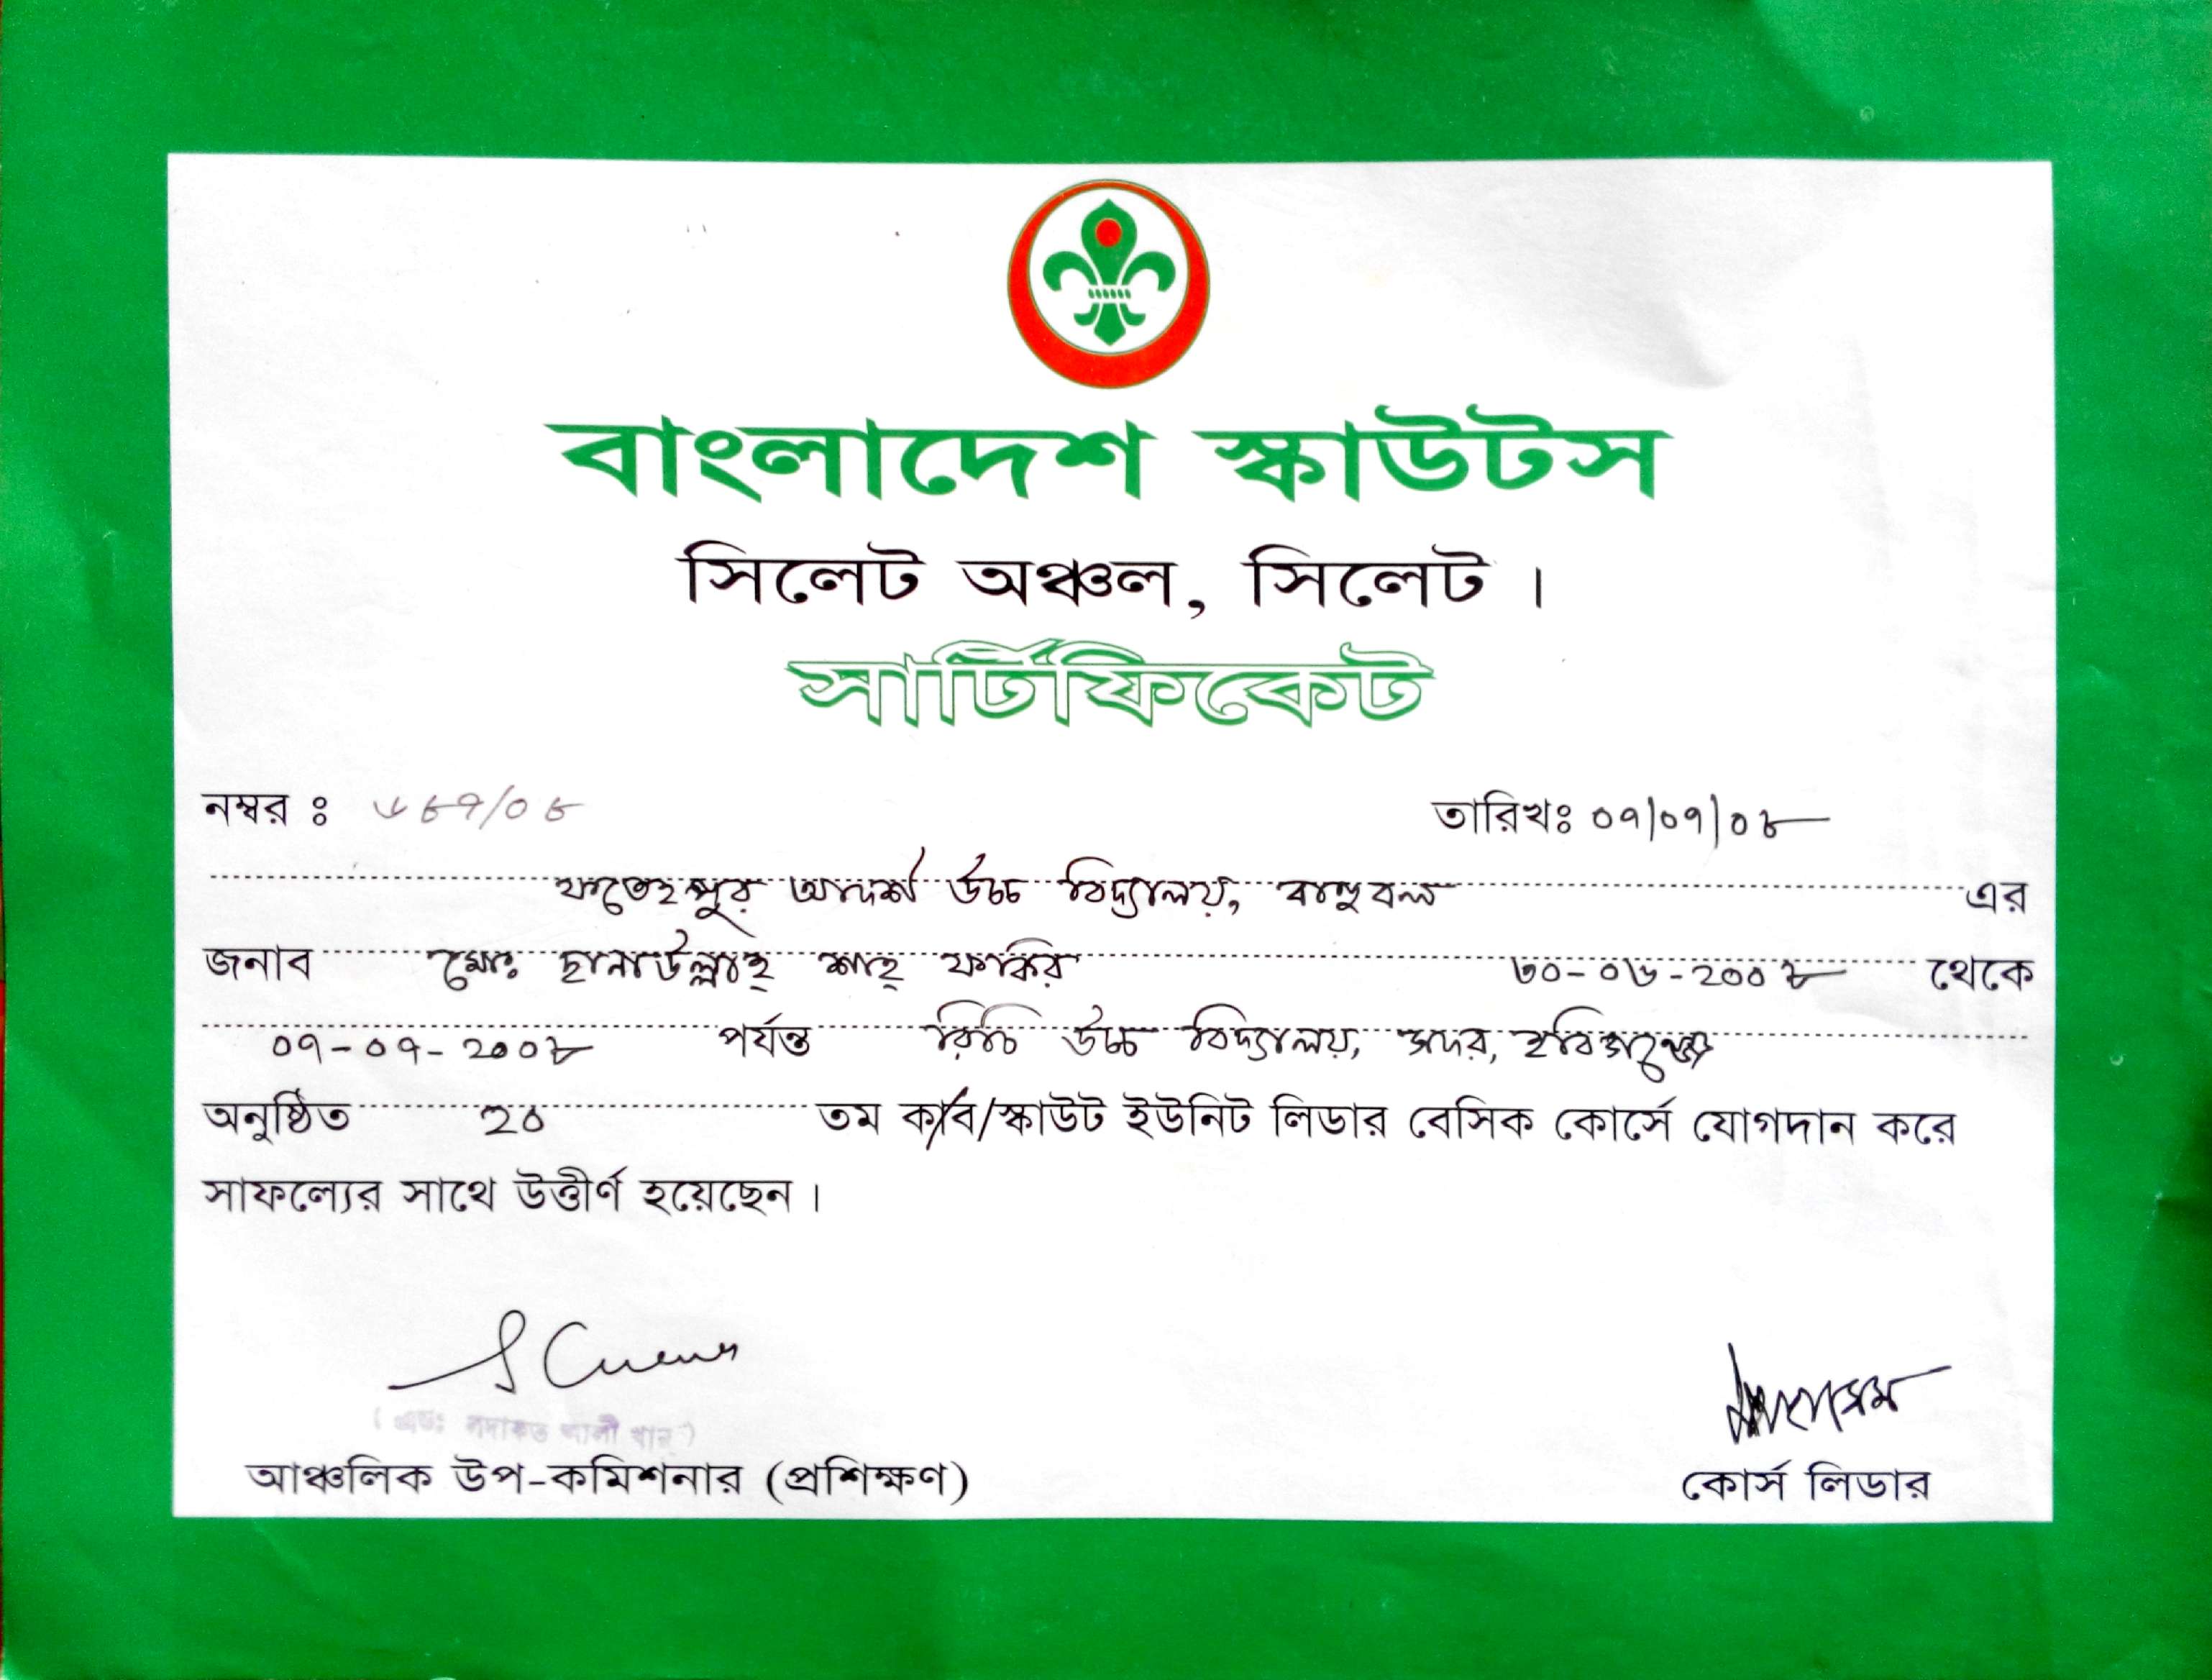 বাংলাদেশ স্কাউটস
সিলেট অঞ্চল, সিলেট ।
সার্টিফিকেট
নম্বর ঃ ৬৮৭/০৮ তারিখঃ ০৭/০৭/০৮
ফতেহপুর আদর্শ উচ্চ বিদ্যালয়, বাহুবল এর
জনাব মোঃ ছানাউল্লাহ্ শাহ্ ফকির ৩০-০৬-২০০৮ থেকে
০৭-০৭-২০০৮ পর্যন্ত রিচি উচ্চ বিদ্যালয়, সদর, হবিগঞ্জে
অনুষ্ঠিত ২০ তম কাব/স্কাউট ইউনিট লিডার বেসিক কোর্সে যোগদান করে
সাফল্যের সাথে উত্তীর্ণ হয়েছেন ।
আলী খান )
আঞ্চলিক উপ-কমিশনার (প্রশিক্ষণ) কোর্স লিডার